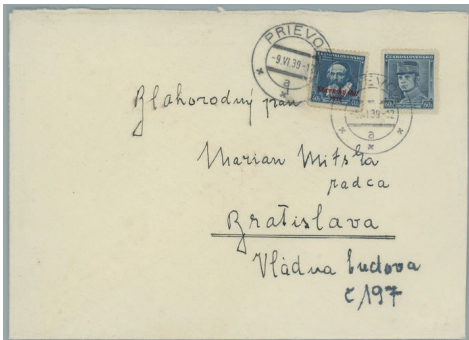 PRIEVOZ
-9.VI.39-17
a
ČESKOSLOVENSKO
ČESKOSLOVENSKO
60
60
-9.VI.39-17
a
Blahorodný pán
Marian Mitska
radca
Bratislava
Vládna budova
č 197